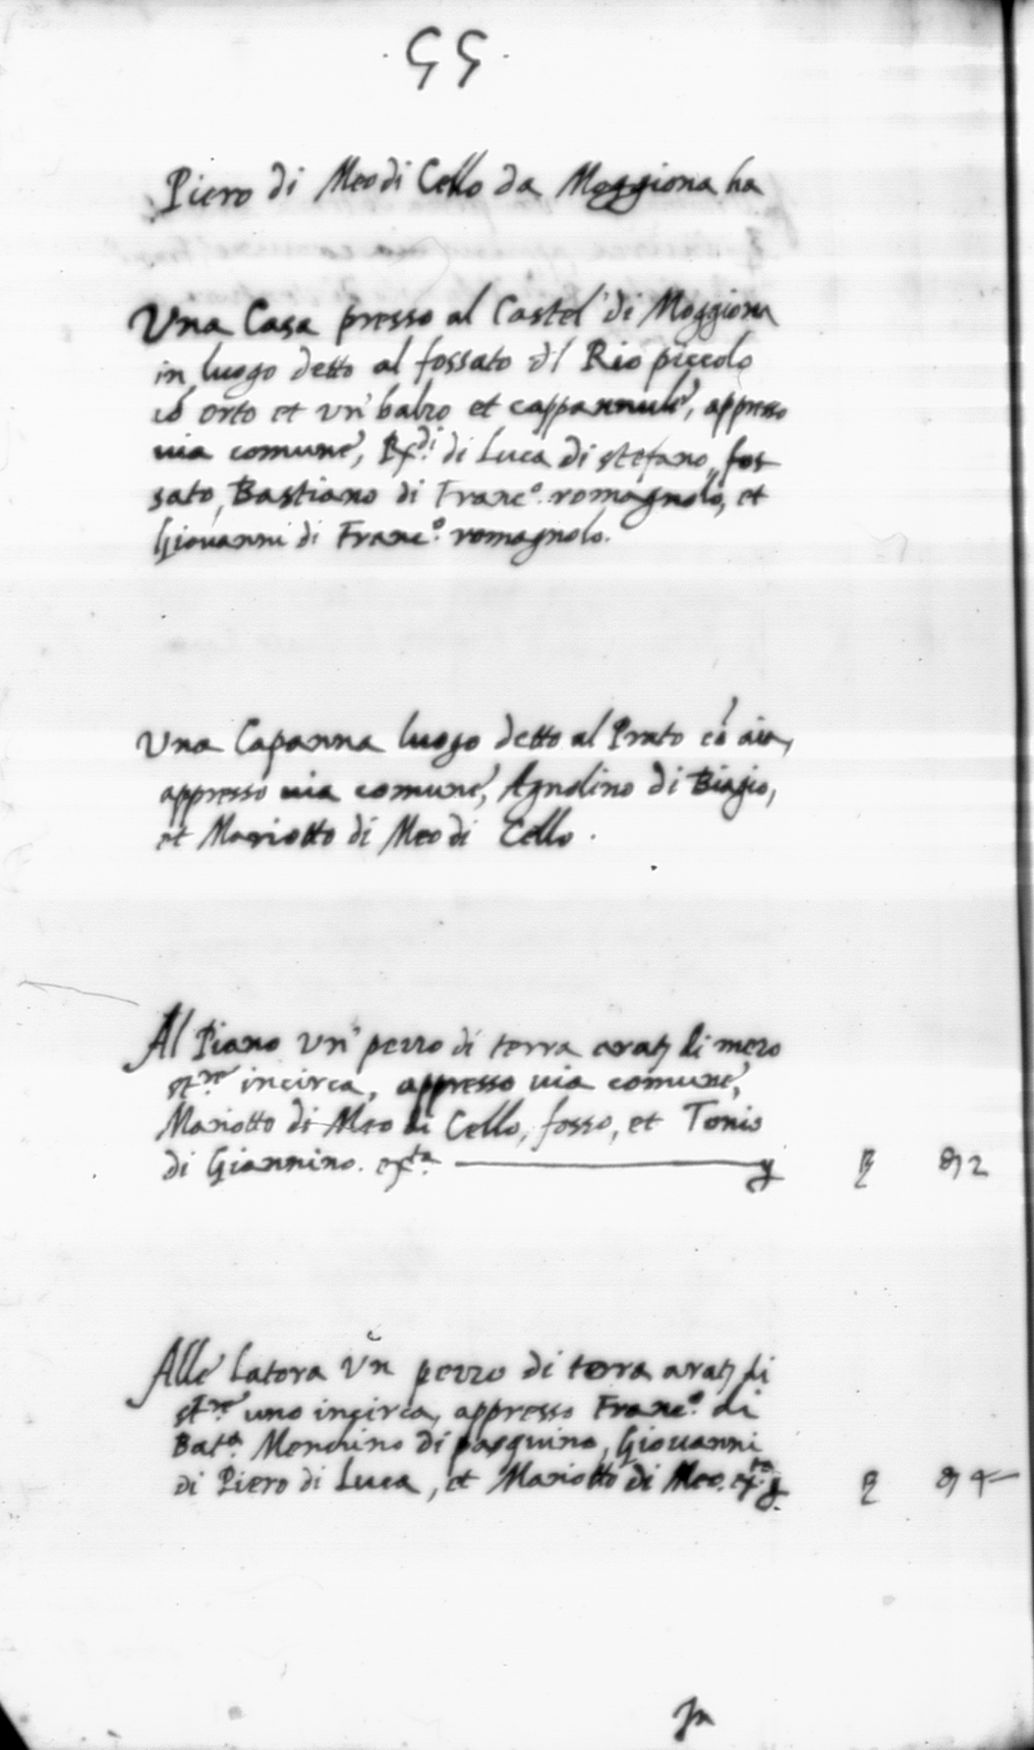 .55.
Piero di Meo di Cello da Moggiona ha
Una Casa presso al Castel' di Moggiona
in luogo detto al fossato dl Rio piccolo
cō orto et un' balzo et cappannule, appresso
via comune, Rx.di di Luca di stefano, fos
sato, Bastiano di Franc.o romagnolo, et
Giovanni di Franc.o romagnolo.
Una Capanna luogo detto al Prato cō aia,
appresso via comune, Agnolino di Biagio,
et Mariotto di Meo di Cello.
Al Piano un' pezzo di terra arat di mezo
st.re incirca, appresso via comune,
Mariotto di Meo di Cello, fosso, et Tonio
di Giannino.
Alle Latora un pezzo di terra arat di
st.re uno incirca, appresso Franc.o di
Bat.a Menchino di pasquino, Giovanni
di Piero di Luca, et Mariotto di Meo.